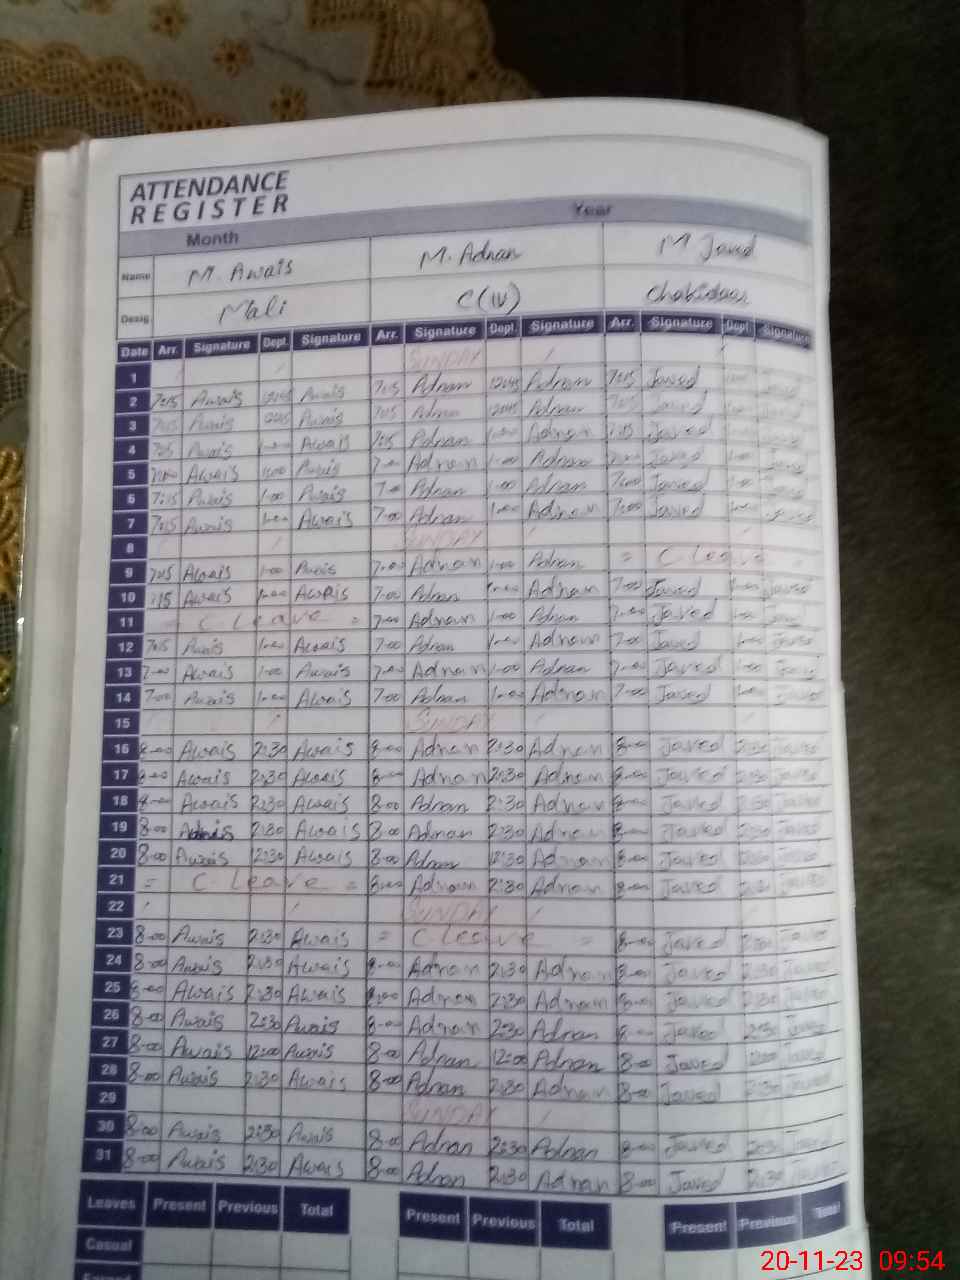 ATTENDANCE
REGISTER
Month Year
Name M. Awais M. Adnan M Javed
Desig. Mali C(IV) Chokidaar
Date Arr. Signature Dept. Signature Arr. Signature Dept. Signature Arr. Signature Dept. Signature
1 SUNDAY
2 7:15 Awais 12:45 Awais 7:15 Adnan 12:45 Adnan 7:15 Javed
3 7:15 Awais 12:45 Awais 7:15 Adnan 12:45 Adnan 7:15 Javed
4 7:15 Awais 1-00 Awais 7:15 Adnan 1-00 Adnan 7:15 Javed
5 Awais Awais 7-00 Adnan 1-00 Adnan Javed
6 7:15 Awais 1-00 Awais 7-00 Adnan 1-00 Adnan 7-00 Javed
7 7:15 Awais 1-00 Awais 7:00 Adnan 1-00 Adnan 7-00 Javed 1-00 Javed
8 SUNDAY
9 7:15 Awais 1-00 Awais 7-00 Adnan 1-00 Adnan = C Leave =
10 7:15 Awais 1-00 Awais 7-00 Adnan 1-00 Adnan 7-00 Javed 1-00 Javed
11 = C Leave = 7-00 Adnan 1-00 Adnan 7-00 Javed 1-00 Javed
12 7:15 Awais 1-00 Awais 7-00 Adnan 1-00 Adnan 7-00 Javed 1-00 Javed
13 7-00 Awais 1-00 Awais 7-00 Adnan 1-00 Adnan 7-00 Javed 1-00 Javed
14 7-00 Awais 1-00 Awais 7-00 Adnan 1-00 Adnan 7-00 Javed 1-00 Javed
15 SUNDAY
16 8-00 Awais 2:30 Awais 8-00 Adnan 2:30 Adnan 8-00 Javed 2:30 Javed
17 8-00 Awais 2:30 Awais 8-00 Adnan 2:30 Adnan 8-00 Javed 2:30 Javed
18 8-00 Awais 2:30 Awais 8-00 Adnan 2:30 Adnan 8-00 Javed 2:30 Javed
19 8-00 2:30 Awais 8-00 Adnan 2:30 Adnan 8-00 Javed 2:30 Javed
20 8-00 Awais 2:30 Awais 8-00 Adnan 2:30 Adnan 8-00 Javed Javed
21 = C-Leave = 8-00 Adnan 2:30 Adnan 8-00 Javed 2:30 Javed
22 SUNDAY
23 8-00 Awais 2:30 Awais = C Leave = 8-00 Javed 2:30 Javed
24 8-00 Awais 2:30 Awais 8-00 Adnan 2:30 Adnan 8-00 Javed 2:30 Javed
25 8-00 Awais 2:30 Awais 8-00 Adnan 2:30 Adnan 8-00 Javed 2:30 Javed
26 8-00 Awais 2:30 Awais 8-00 Adnan 2:30 Adnan 8-00 Javed 2:30 Javed
27 8-00 Awais 12:00 Awais 8-00 Adnan 12:00 Adnan 8-00 Javed 12:00 Javed
28 8-00 Awais 2:30 Awais 8-00 Adnan 2:30 Adnan 8-00 Javed 2:30 Javed
29 SUNDAY
30 8-00 Awais 2:30 Awais 8-00 Adnan 2:30 Adnan 8-00 Javed 2:30 Javed
31 8-00 Awais 2:30 Awais 8-00 Adnan 2:30 Adnan 8-00 Javed 2:30 Javed
Leaves Present Previous Total Present Previous Total Present Previous Total
Casual
20-11-23 09:54